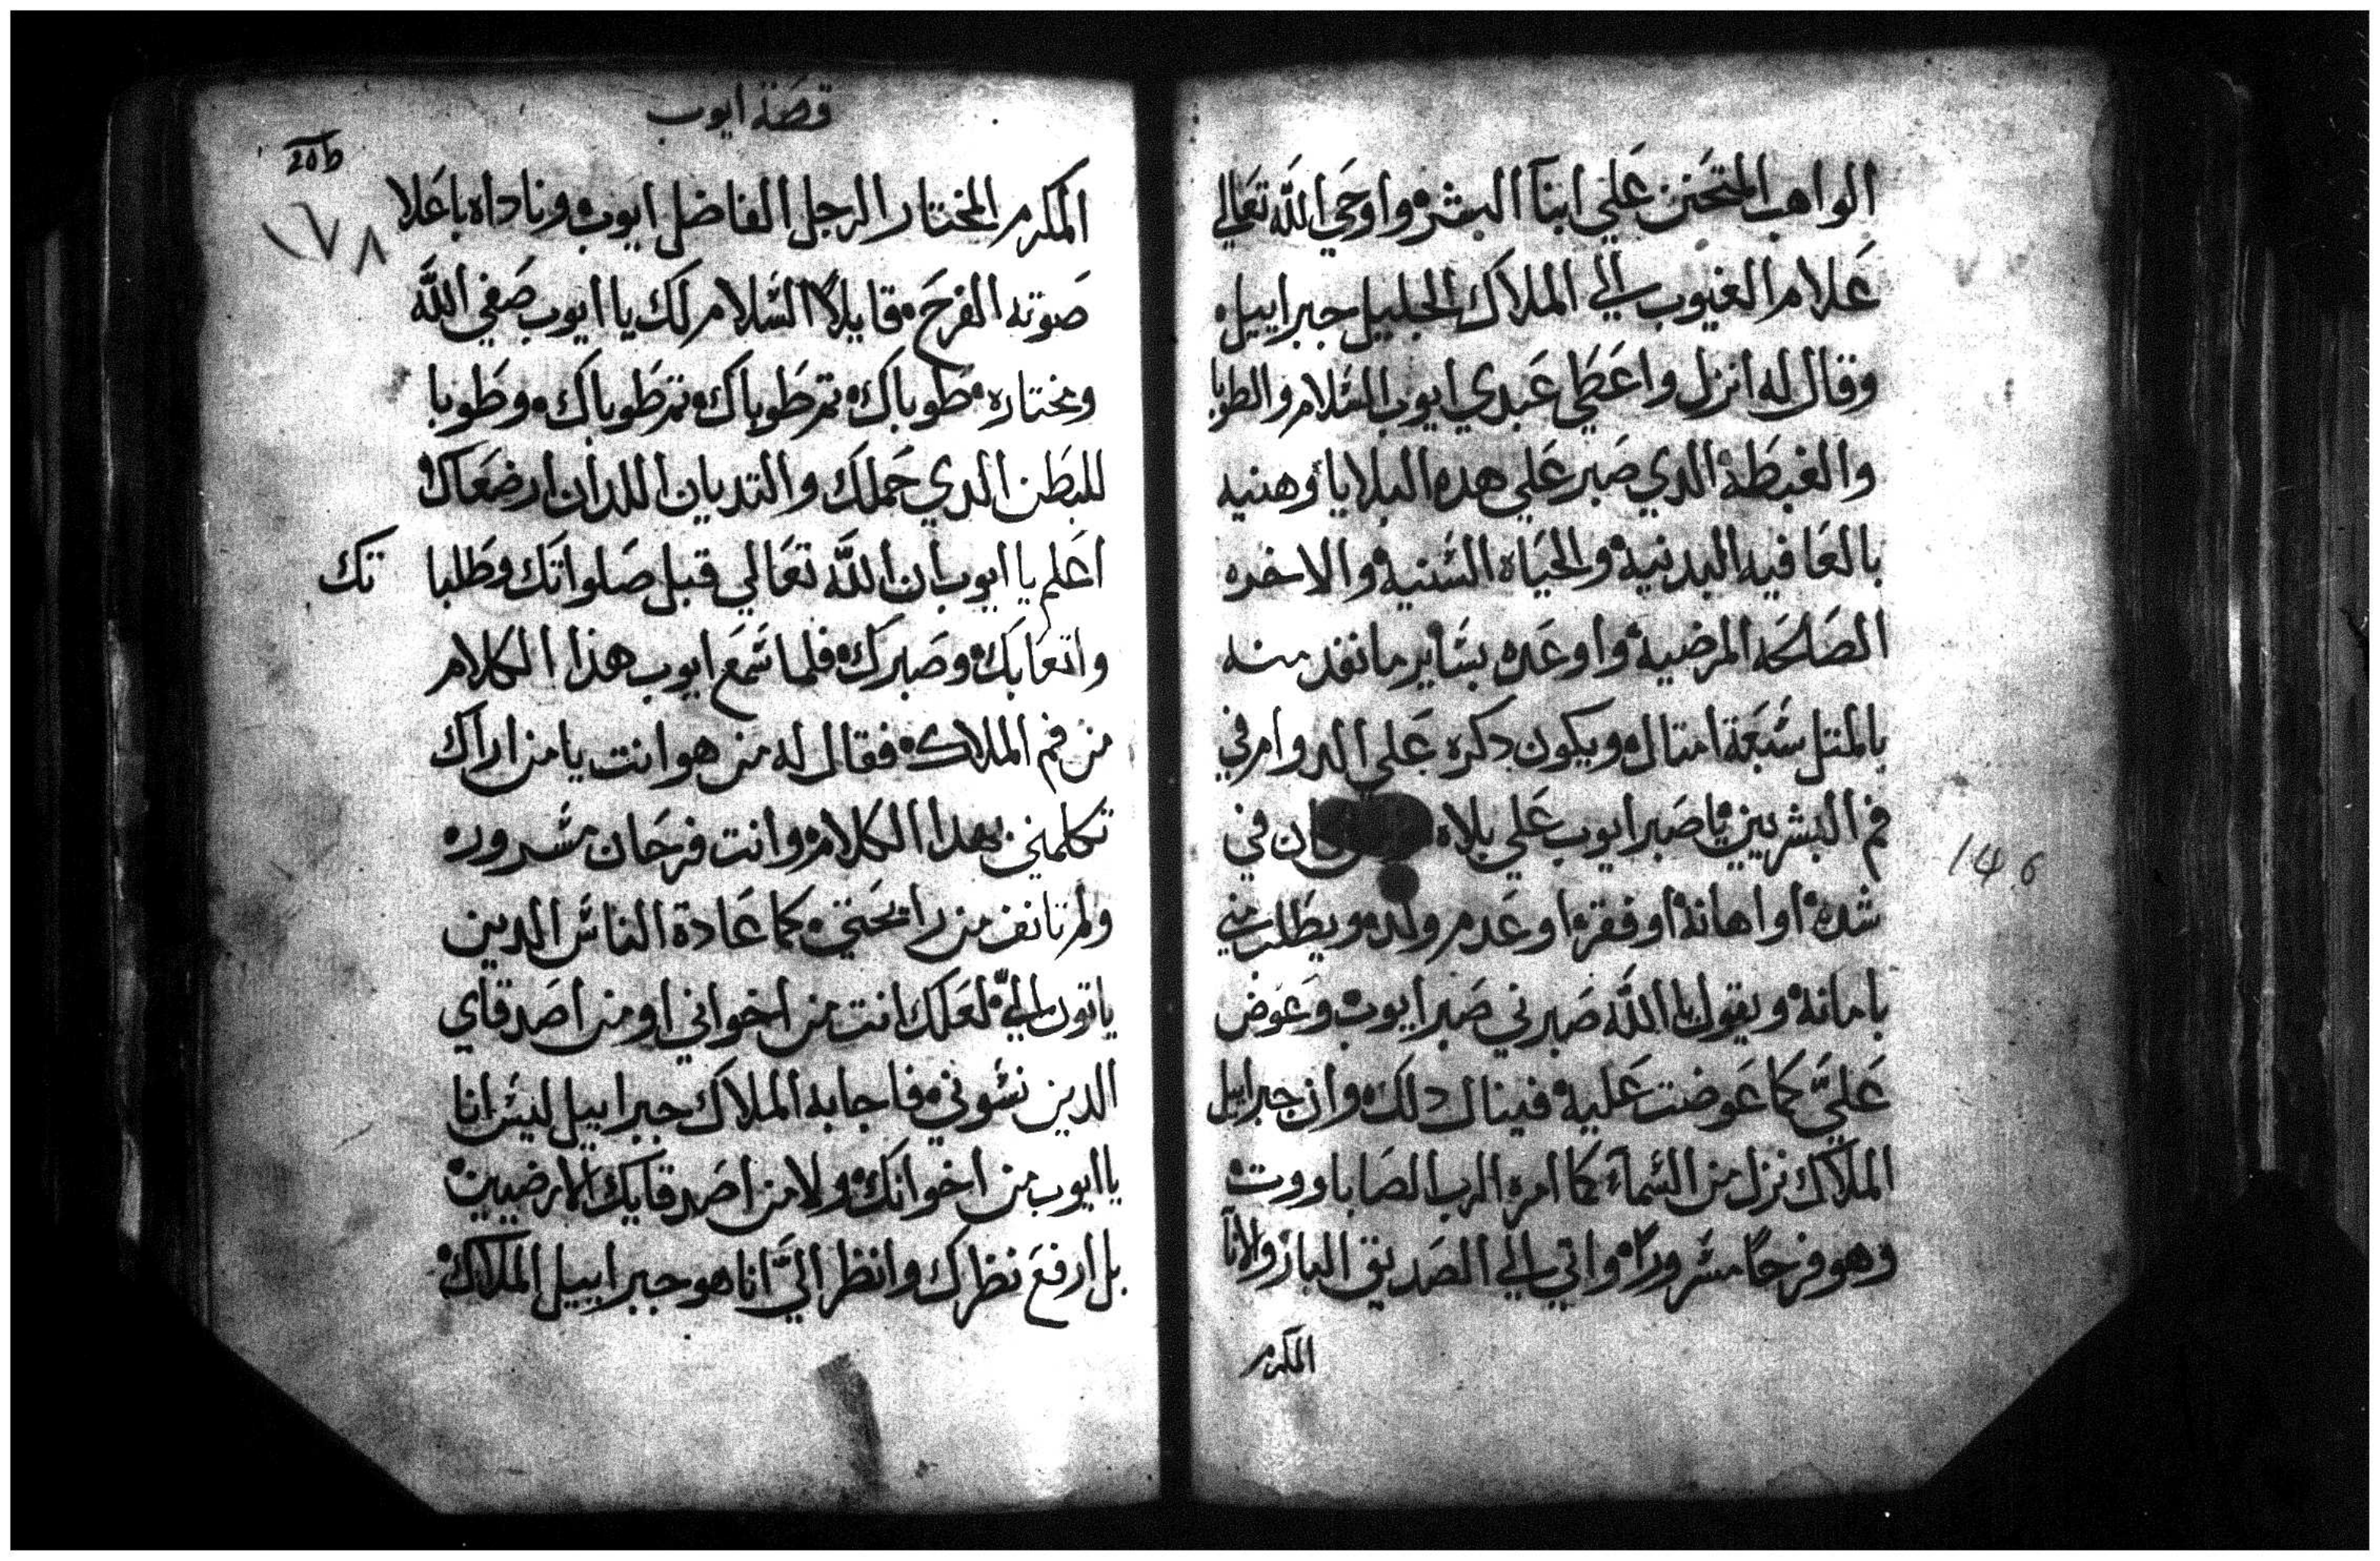 الواهب المتحنن علي ابنآ البشر واوحي الله تعالي
علام الغيوب الي الملاك الجليل جبراييل
وقال له انزل واعطي عبدي ايوب السلام والطوبا
والغبطة الدي صبر علي هده البلايا وهنيه
بالعافيه البدنية والحياه السنية والاخره
الصالحه المرضية واوعده بساير ما نفد منه
بالمتل سبعة امتال ويكون دكره علي الدوام في
فم البشريين يا صبر ايوب علي بلاه كان في
شده او اهانة او فقر او عدم ولده ويطلب مني
بامانة ويقول يا الله صبرني صبر ايوب وعوض
عليَّ كما عوضت عليه فينال دلك وان جبراييل
الملاك نزل من السمآء كما امره الرب الصاباووت
وهو فرحًا مسرورًا واتي الي الصديق البار والانا
المكرم
قصة ايوب
20b
١٧٨
المكرم المختار الرجل الفاضل ايوب وناداه باعلا
صوته الفرح قايلاً السلام لك يا ايوب صفي الله
ومختاره طوباك تم طوباك تم طوباك وطوبا
للبطن الدي حملك والتديان اللدان ارضعاك
اعلم يا ايوب ان الله تعالي قبل صلواتك وطلباتك
واتعابك وصبرك فلما سمع ايوب هذا الكلام
من فم الملاك فقال له من هو انت يا من اراك
تكلمني بهدا الكلام وانت فرحان بسروره
ولم تانف من رايحتي كما عادة الناس الدين
ياتون اليّ لعلك انت من اخواني او من اصدقاي
الدين نسوني فاجابه الملاك جبراييل ليس انا
يا ايوب من اخوانك ولا من اصدقايك الارضيين
بل ارفع نظرك وانظر اليَّ انا هو جبراييل الملاك
146